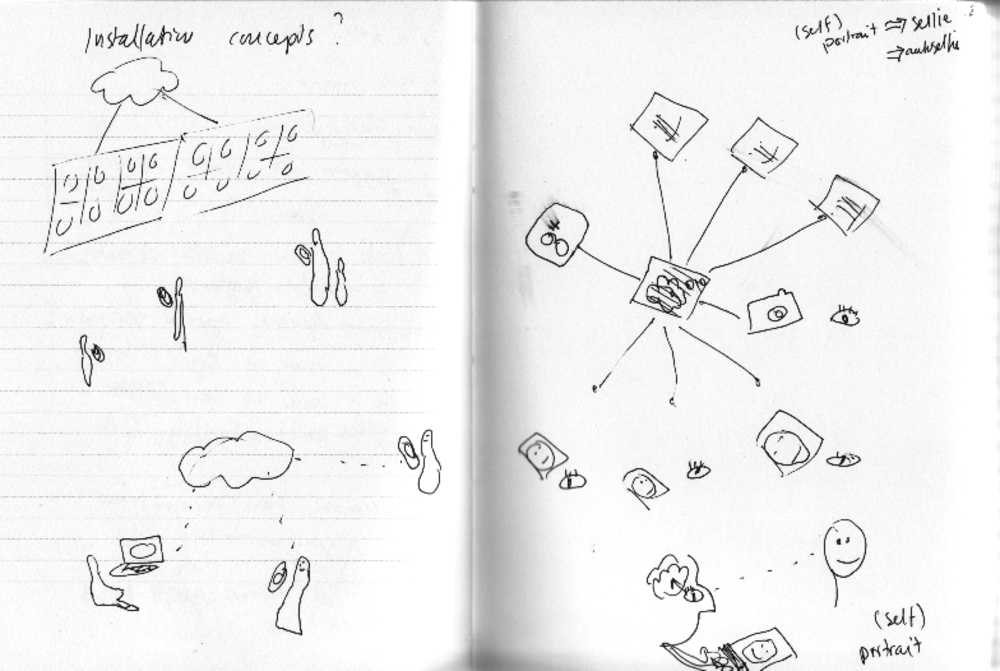 Installation concepts?
(self)
portrait ⇒ selfie
⇒ autoselfie
(self)
portrait